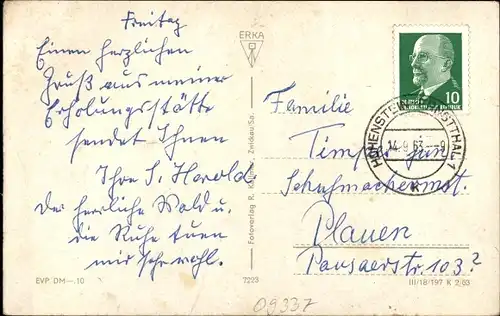 Freitag
Einen herzlichen
Gruß aus meiner
Erholungsstätte
sendet Ihnen
Ihre S. Herold.
Der herrliche Wald u.
die Ruhe tuen
mir sehr wohl.
EVP DM -.10
7223
ERKA
Fotoverlag R. Zwickau/Sa.
10
HOHENSTEIN-ERNSTTHAL 1
14.9.63 -9
K
Familie
Timper jun.
Schuhmachermst.
Plauen
Pausaerstr. 103?
III/18/197 K 2/63
09337